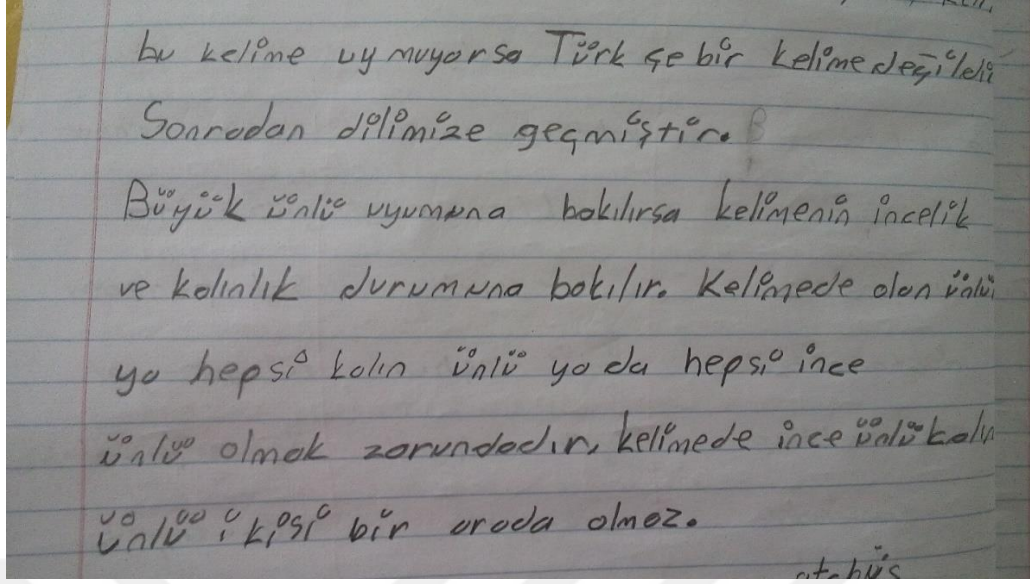 bu kelime uymuyorsa Türkçe bir kelime değildi
Sonrodan dilimize geçmiştir.
Büyük ünlü uyumuna bakılırsa kelimenin incelik
ve kalınlık durumuna bakılır. Kelimede olan ünlü
ya hepsi kalın ünlü ya da hepsi ince
ünlü olmak zorundadır, kelimede ince ünlü kalın
ünlü ikisi bir arada olmaz.
otobüs